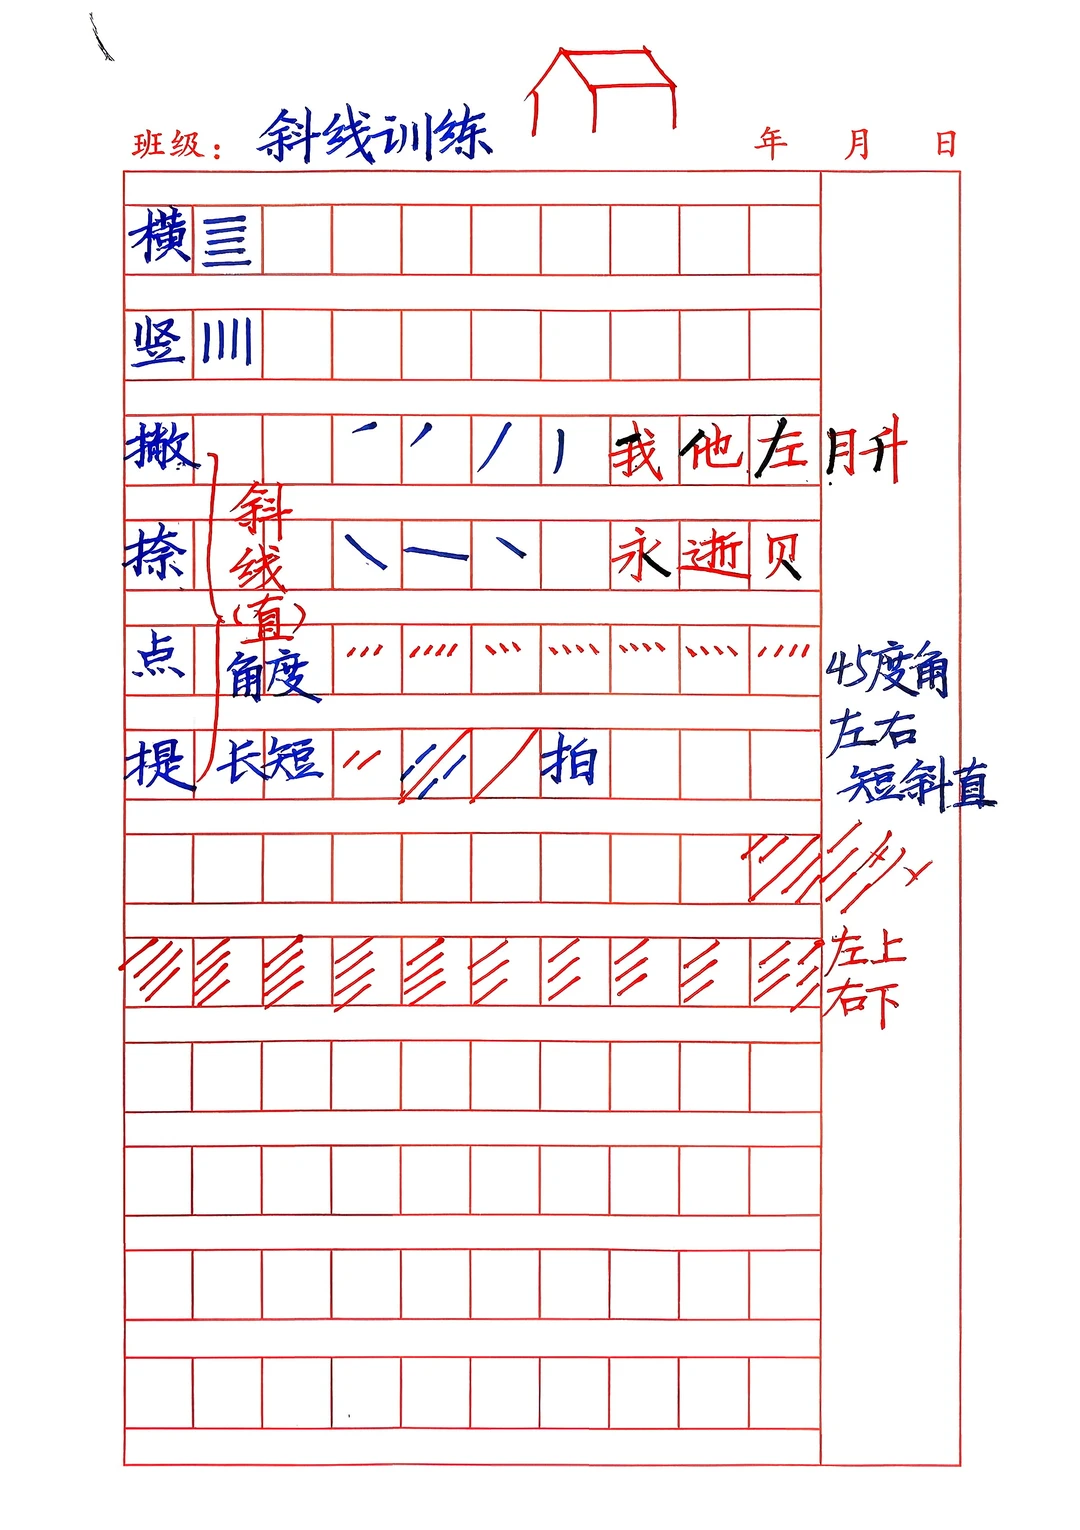 班级： 斜线训练 年 月 日
横
竖
撇 我 他 左 月 升
斜
捺 线 永 逝 贝
（直）
点 角度 45度角
左右
提 长短 拍 短斜直
左上
右下